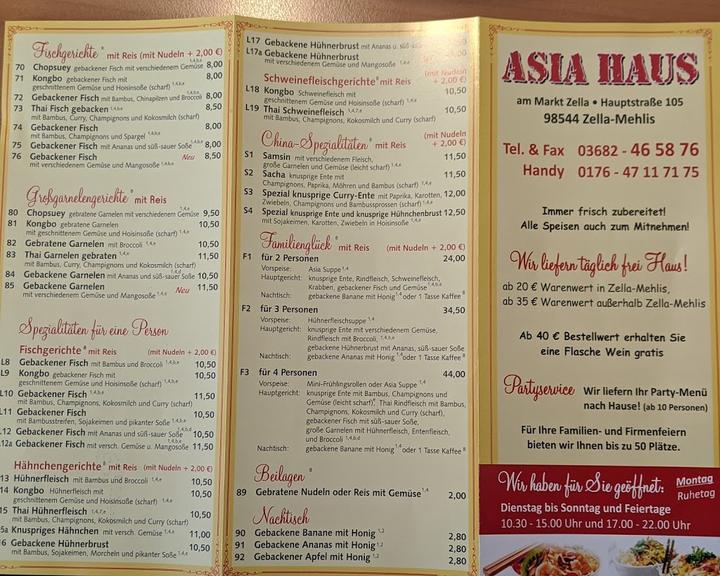 Fischgerichte mit Reis (mit Nudeln + 2,00 €)
70 Chopsuey gebackener Fisch mit verschiedenem Gemüse 8,00
71 Kongbo gebackener Fisch mit 8,00
geschnittenem Gemüse und Hoisinsoße (scharf)
72 Gebackener Fisch 8,00
mit Bambus, Chinapilzen und Broccoli
73 Thai Fisch gebacken 8,50
mit Bambus, Curry, Champignons und Kokosmilch (scharf)
74 Gebackener Fisch 8,00
mit Bambus, Champignons und Spargel
75 Gebackener Fisch mit Ananas und süß-sauer Soße 8,00
76 Gebackener Fisch Neu 8,50
mit verschiedenem Gemüse und Mangosoße
Großgarnelengerichte mit Reis
80 Chopsuey gebratene Garnelen mit verschiedenem Gemüse 9,50
81 Kongbo gebratene Garnelen 10,50
mit geschnittenem Gemüse und Hoisinsoße (scharf)
82 Gebratene Garnelen mit Broccoli 10,50
83 Thai Garnelen gebraten 11,50
mit Bambus, Curry, Champignons und Kokosmilch (scharf)
84 Gebackene Garnelen mit Ananas und süß-sauer Soße 10,50
85 Gebackene Garnelen Neu 11,50
mit verschiedenem Gemüse und Mangosoße
Spezialitäten für eine Person
Fischgerichte mit Reis (mit Nudeln + 2,00 €)
L8 Gebackener Fisch mit Bambus und Broccoli 10,50
L9 Kongbo gebackener Fisch mit 10,50
geschnittenem Gemüse und Hoisinsoße (scharf)
L10 Gebackener Fisch 11,50
mit Bambus, Champignons, Kokosmilch und Curry (scharf)
L11 Gebackener Fisch
mit Bambusstreifen, Sojakeimen und pikanter Soße 10,50
L12 Gebackener Fisch mit Ananas und süß-sauer Soße 10,50
12a Gebackener Fisch mit versch. Gemüse u. Mangosoße 11,50
Hähnchengerichte mit Reis (mit Nudeln + 2,00 €)
13 Hühnerfleisch mit Bambus und Broccoli 10,50
14 Kongbo Hühnerfleisch mit
geschnittenem Gemüse und Hoisinsoße (scharf) 10,50
15 Thai Hühnerfleisch 10,50
mit Bambus, Champignons, Kokosmilch und Curry (scharf)
5a Knuspriges Hähnchen mit versch. Gemüse 11,00
16 Gebackene Hühnerbrust 10,50
mit Bambus, Sojakeimen, Morcheln und pikanter Soße
L17 Gebackene Hühnerbrust mit Ananas u. süß
L17a Gebackene Hühnerbrust
mit verschiedenem Gemüse und Mangosoße
Schweinefleischgerichte mit Reis (mit Nudeln + 2,00 €)
L18 Kongbo Schweinefleisch mit 10,50
geschnittenem Gemüse und Hoisinsoße (scharf)
L19 Thai Schweinefleisch 10,50
mit Bambus, Champignons, Kokosmilch und Curry (scharf)
China-Spezialitäten mit Reis (mit Nudeln + 2,00 €)
S1 Samsin mit verschiedenem Fleisch, 11,50
große Garnelen und Gemüse (leicht scharf)
S2 Sacha knusprige Ente mit 11,50
Champignons, Paprika, Möhren und Bambus (scharf)
S3 Spezial knusprige Curry-Ente mit Paprika, Karotten, 12,00
Zwiebeln, Champignons und Bambussprossen (scharf)
S4 Spezial knusprige Ente und knusprige Hühnchenbrust 12,50
mit Sojakeimen, Karotten, Zwiebeln in Hoisinsoße
Familienglück mit Reis (mit Nudeln + 2,00 €)
F1 für 2 Personen 24,00
Vorspeise: Asia Suppe
Hauptgericht: knusprige Ente, Rindfleisch, Schweinefleisch,
Krabben, gebackener Fisch und Gemüse
Nachtisch: gebackene Banane mit Honig oder 1 Tasse Kaffee
F2 für 3 Personen 34,50
Vorspeise: Hühnerfleischsuppe
Hauptgericht: knusprige Ente mit verschiedenem Gemüse,
Rindfleisch mit Broccoli,
gebackene Hühnerbrust mit Ananas, süß-sauer Soße
Nachtisch: gebackene Ananas mit Honig oder 1 Tasse Kaffee
F3 für 4 Personen 44,00
Vorspeise: Mini-Frühlingsrollen oder Asia Suppe
Hauptgericht: knusprige Ente mit Bambus, Champignons und
Gemüse (leicht scharf), Thai Rindfleisch mit Bambus,
Champignons, Kokosmilch und Curry (scharf),
gebackener Fisch mit süß-sauer Soße,
große Garnelen mit Hühnerfleisch, Entenfleisch,
und Broccoli
Nachtisch: gebackene Banane mit Honig oder 1 Tasse Kaffee
Beilagen
89 Gebratene Nudeln oder Reis mit Gemüse 2,00
Nachtisch
90 Gebackene Banane mit Honig 2,80
91 Gebackene Ananas mit Honig 2,80
92 Gebackener Apfel mit Honig 2,80
ASIA HAUS
am Markt Zella • Hauptstraße 105
98544 Zella-Mehlis
Tel. & Fax 03682 - 46 58 76
Handy 0176 - 47 11 71 75
Immer frisch zubereitet!
Alle Speisen auch zum Mitnehmen!
Wir liefern täglich frei Haus!
ab 20 € Warenwert in Zella-Mehlis,
ab 35 € Warenwert außerhalb Zella-Mehlis
Ab 40 € Bestellwert erhalten Sie
eine Flasche Wein gratis
Partyservice Wir liefern Ihr Party-Menü
nach Hause! (ab 10 Personen)
Für Ihre Familien- und Firmenfeiern
bieten wir Ihnen bis zu 50 Plätze.
Wir haben für Sie geöffnet: Montag
Ruhetag
Dienstag bis Sonntag und Feiertage
10.30 - 15.00 Uhr und 17.00 - 22.00 Uhr